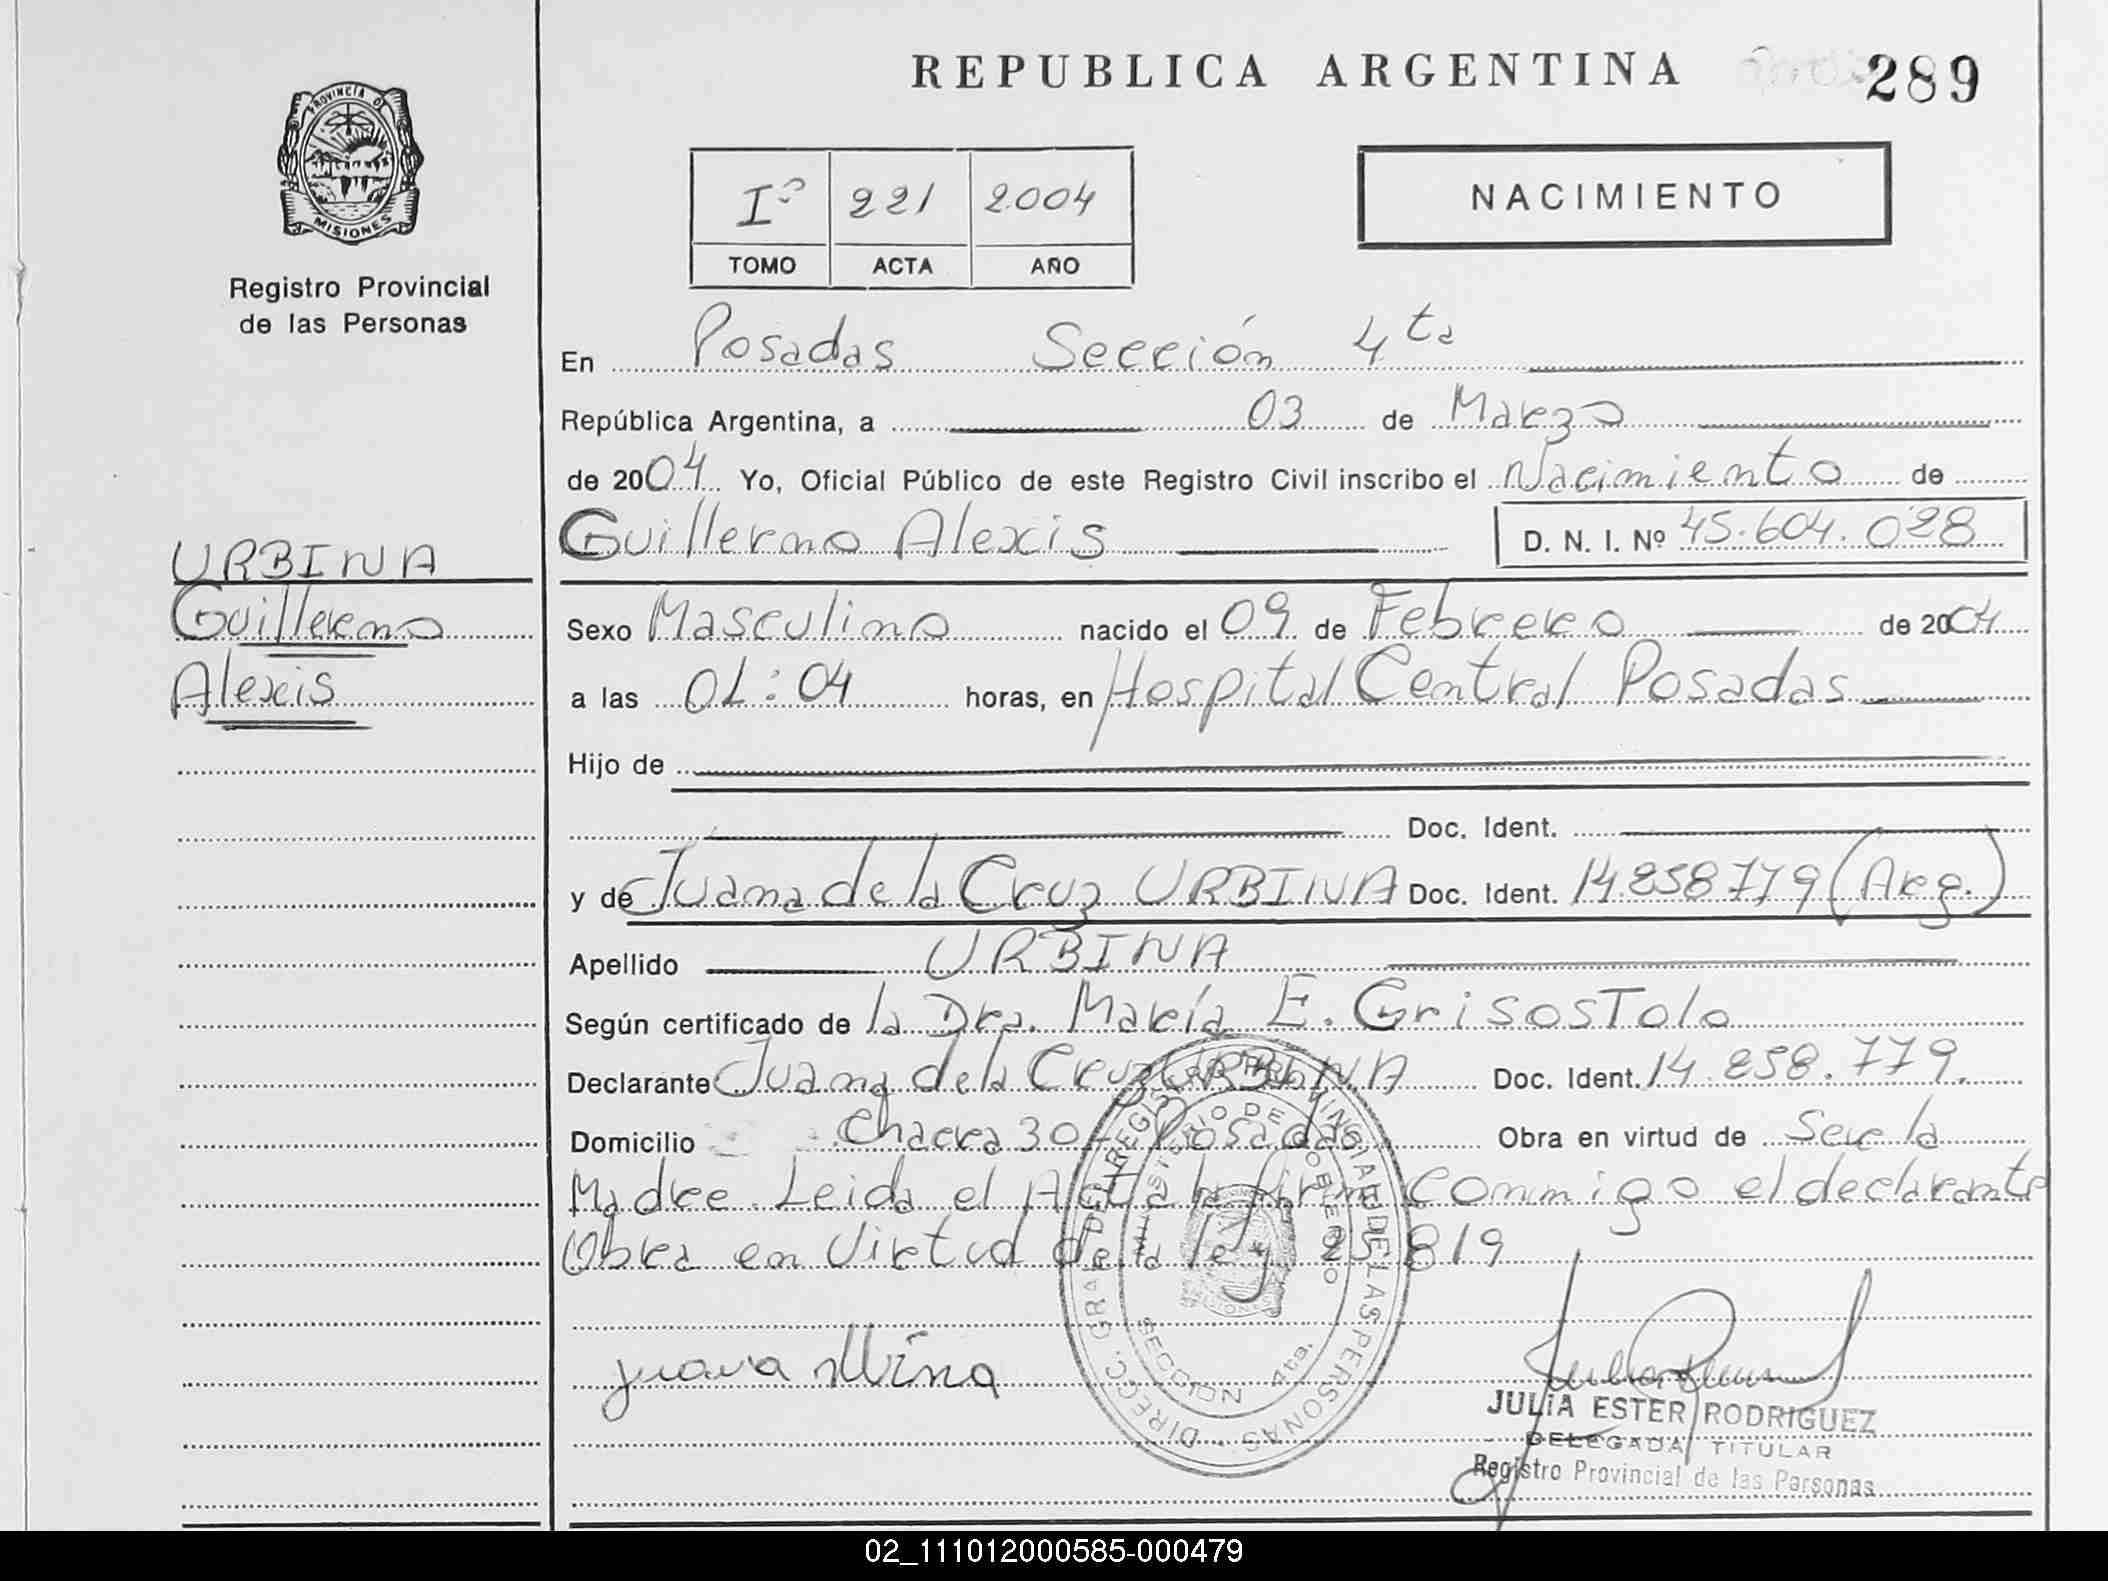 REPUBLICA ARGENTINA
289
PROVINCIA DE
MISIONES
Registro Provincial
de las Personas
Iº 221 2004
TOMO ACTA AÑO
NACIMIENTO
En Posadas Sección 4ta
República Argentina, a 03 de Marzo
de 2004 Yo, Oficial Público de este Registro Civil inscribo el Nacimiento de
Guillermo Alexis D. N. I. Nº 45.604.028
URBINA
Guillermo
Alexis
Sexo Masculino nacido el 09 de Febrero de 2004
a las 01:04 horas, en Hospital Central Posadas
Hijo de
Doc. Ident.
y de Juana de la Cruz URBINA Doc. Ident. 14.858.779 (Arg.)
Apellido URBINA
Según certificado de la Dra. María E. Grisostolo
Declarante Juana de la Cruz URBINA Doc. Ident. 14.858.779.
Domicilio Chacra 30 - Posadas Obra en virtud de Ser la
Madre. Leida el Acta la firma Conmigo el declarante
Obra en Virtud de la ley 25819
juana urbina
DIRECC. GRAL. DEL REGISTRO PROVINCIAL DE LAS PERSONAS
MINISTERIO DE GOBIERNO
SECCION 4ta.
JULIA ESTER RODRIGUEZ
DELEGADA TITULAR
Registro Provincial de las Personas
02_111012000585-000479